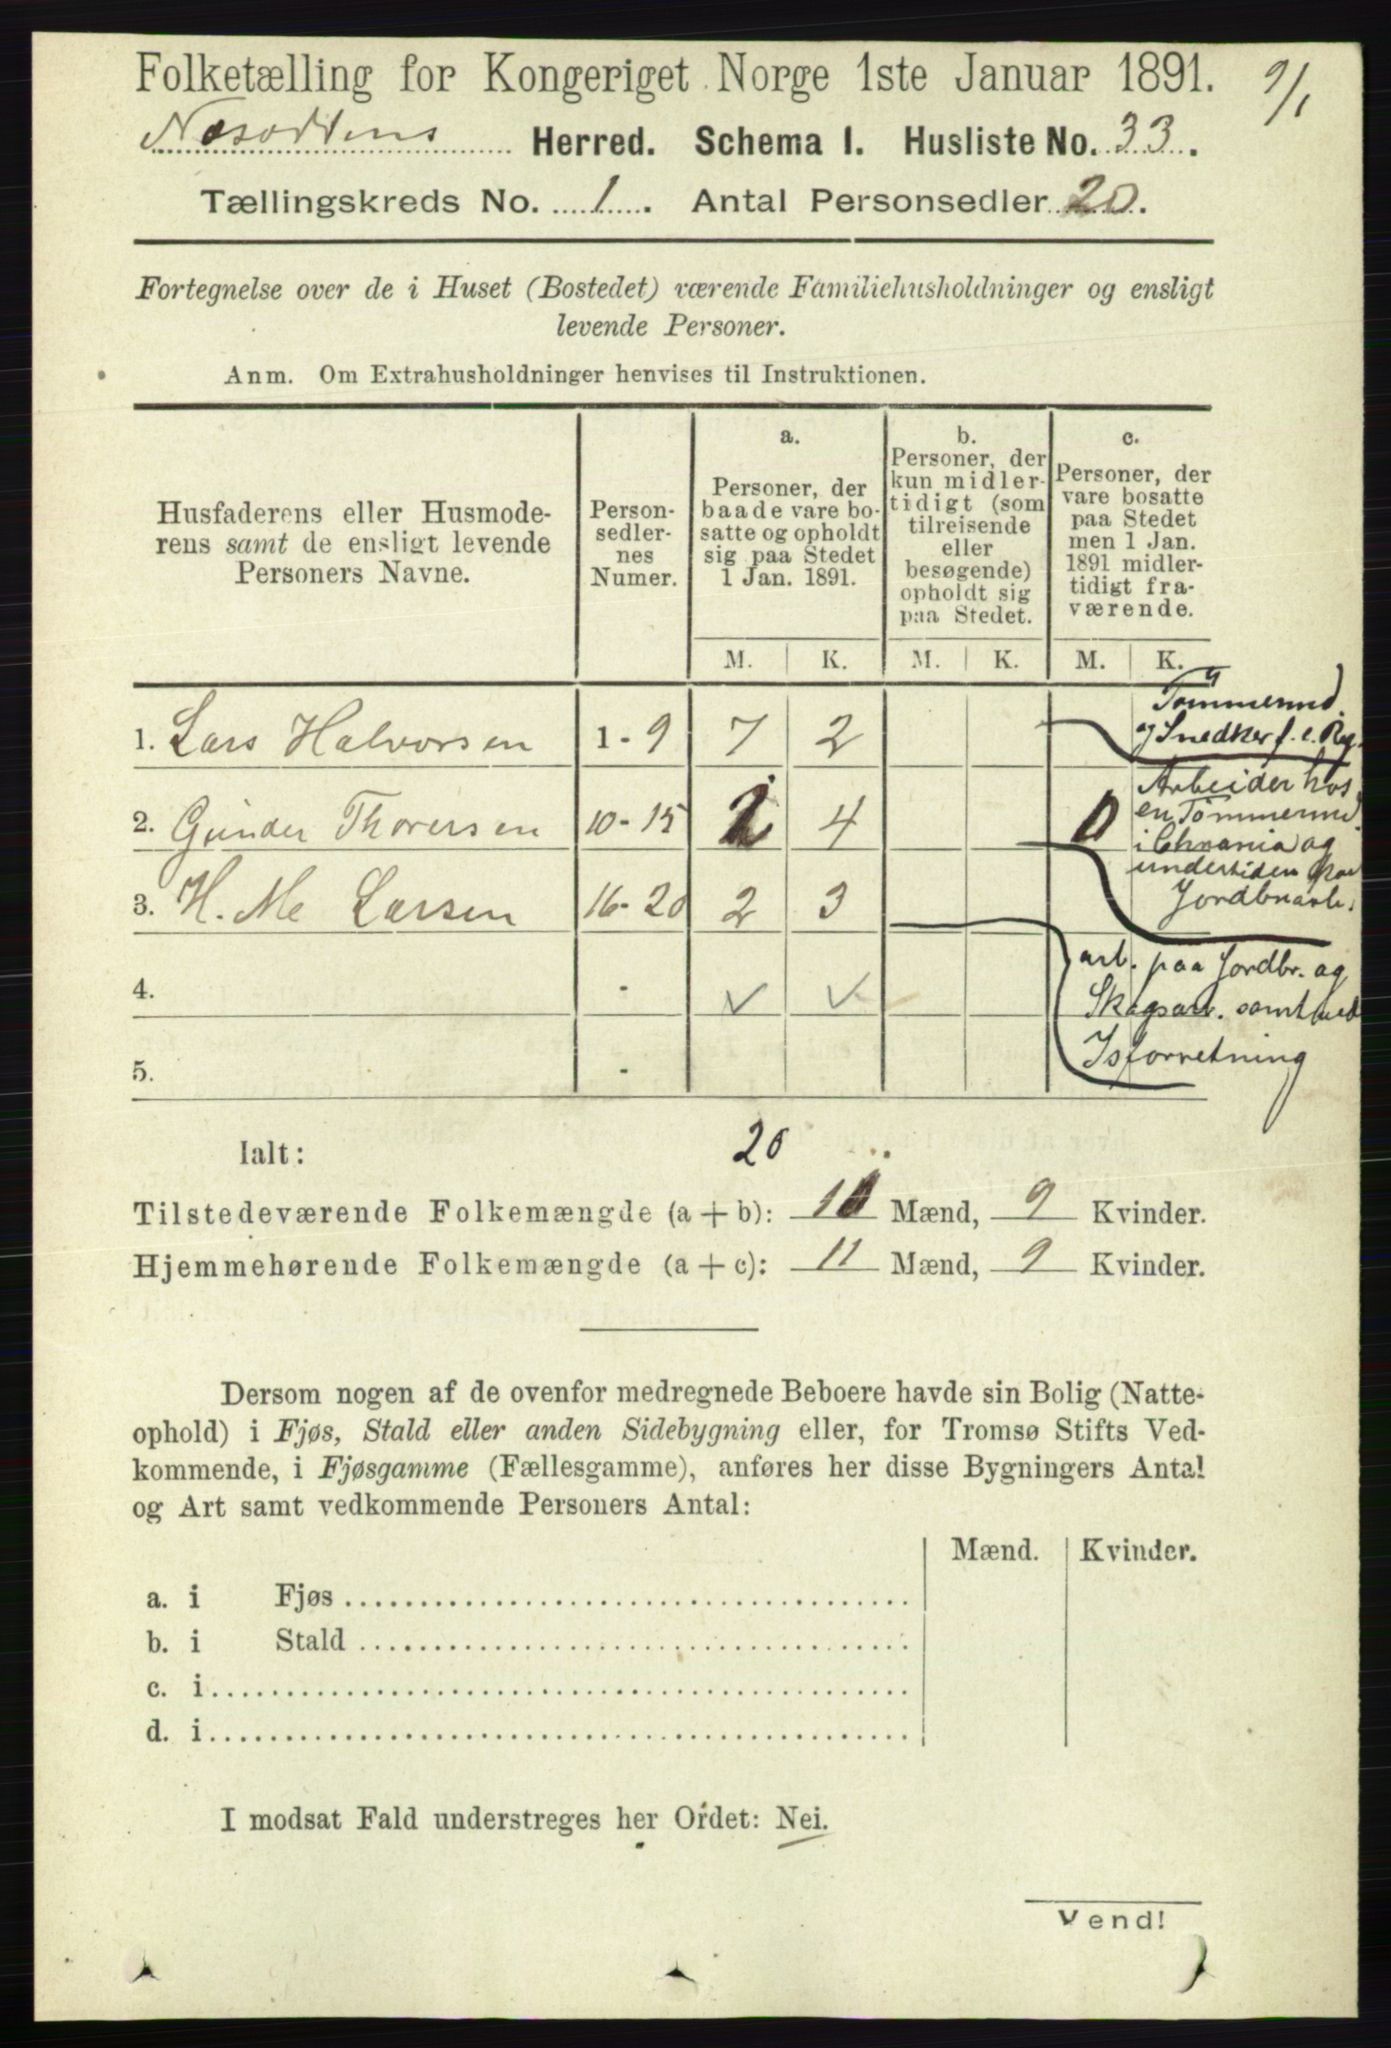 Folketælling for Kongeriget Norge 1ste Januar 1891.
9/1
Næsoddens Herred. Schema I. Husliste No. 33.
Tællingskreds No. 1. Antal Personsedler 20.
Fortegnelse over de i Huset (Bostedet) værende Familiehusholdninger og ensligt
levende Personer.
Anm. Om Extrahusholdninger henvises til Instruktionen.
Husfaderens eller Husmode-
rens samt de ensligt levende
Personers Navne.
Person-
sedler-
nes
Numer.
a.
Personer, der
baade vare bo-
satte og opholdt
sig paa Stedet
1 Jan. 1891.
b.
Personer, der
kun midler-
tidigt (som
tilreisende
eller
besøgende)
opholdt sig
paa Stedet.
c.
Personer, der
vare bosatte
paa Stedet
men 1 Jan.
1891 midler-
tidigt fra-
værende.
M. K. M. K. M. K.
1. Lars Halvorsen 1 - 9 7 2
Tømmermd.
og Snedker f. e. Reg.
2. Gunder Thoresen 10 - 15 2 4 0
Arbeider hos
en Tømmermd.
i Chrania og
undertiden paa
Jordbrarb.
3. H. Me Larsen 16 - 20 2 3
arb. paa Jordbr. og
Skogsarb. samt ved
Isforretning
4. - ✓ ✓
5. -
Ialt: 20
Tilstedeværende Folkemængde (a + b): 11 Mænd, 9 Kvinder.
Hjemmehørende Folkemængde (a + c): 11 Mænd, 9 Kvinder.
Dersom nogen af de ovenfor medregnede Beboere havde sin Bolig (Natte-
ophold) i Fjøs, Stald eller anden Sidebygning eller, for Tromsø Stifts Ved-
kommende, i Fjøsgamme (Fællesgamme), anføres her disse Bygningers Antal
og Art samt vedkommende Personers Antal:
Mænd. Kvinder.
a. i Fjøs
b. i Stald
c. i
d. i
I modsat Fald understreges her Ordet: Nei.
Vend!